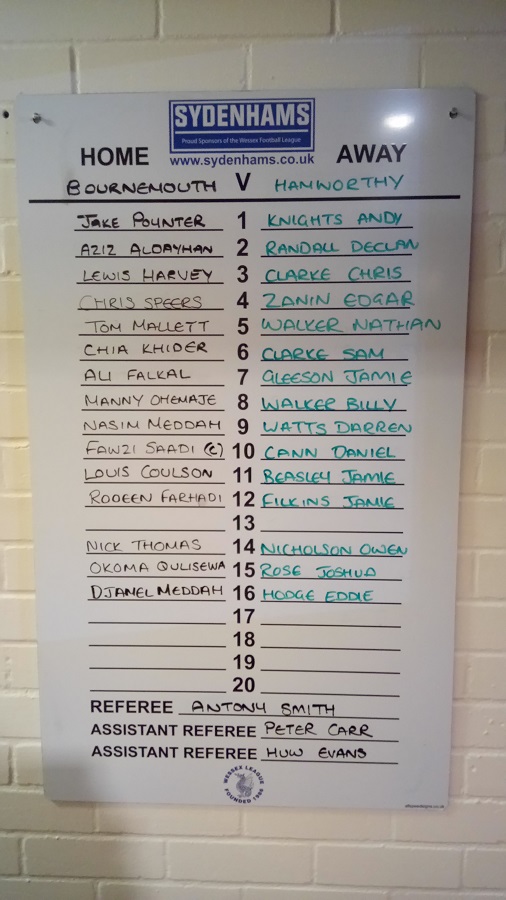 SYDENHAMS
Proud Sponsors of the Wessex Football League
HOME www.sydenhams.co.uk AWAY
BOURNEMOUTH V HAMWORTHY
JAKE POYNTER 1 KNIGHTS ANDY
AZIZ ALDAYHAN 2 RANDALL DECLAN
LEWIS HARVEY 3 CLARKE CHRIS
CHRIS SPEERS 4 ZANIN EDGAR
TOM MALLETT 5 WALKER NATHAN
CHIA KHIDER 6 CLARKE SAM
ALI FALKAL 7 GLEESON JAMIE
MANNY OHEMAJE 8 WALKER BILLY
NASIM MEDDAH 9 WATTS DARREN
FAWZI SAADI (C) 10 CANN DANIEL
LOUIS COULSON 11 BEASLEY JAMIE
RODEEN FARHADI 12 FILKINS JAMIE
13
NICK THOMAS 14 NICHOLSON OWEN
OKOMA QULISEWA 15 ROSE JOSHUA
DJAMEL MEDDAH 16 HODGE EDDIE
17
18
19
20
REFEREE ANTONY SMITH
ASSISTANT REFEREE PETER CARR
ASSISTANT REFEREE HUW EVANS
WESSEX LEAGUE
FOUNDED 1986